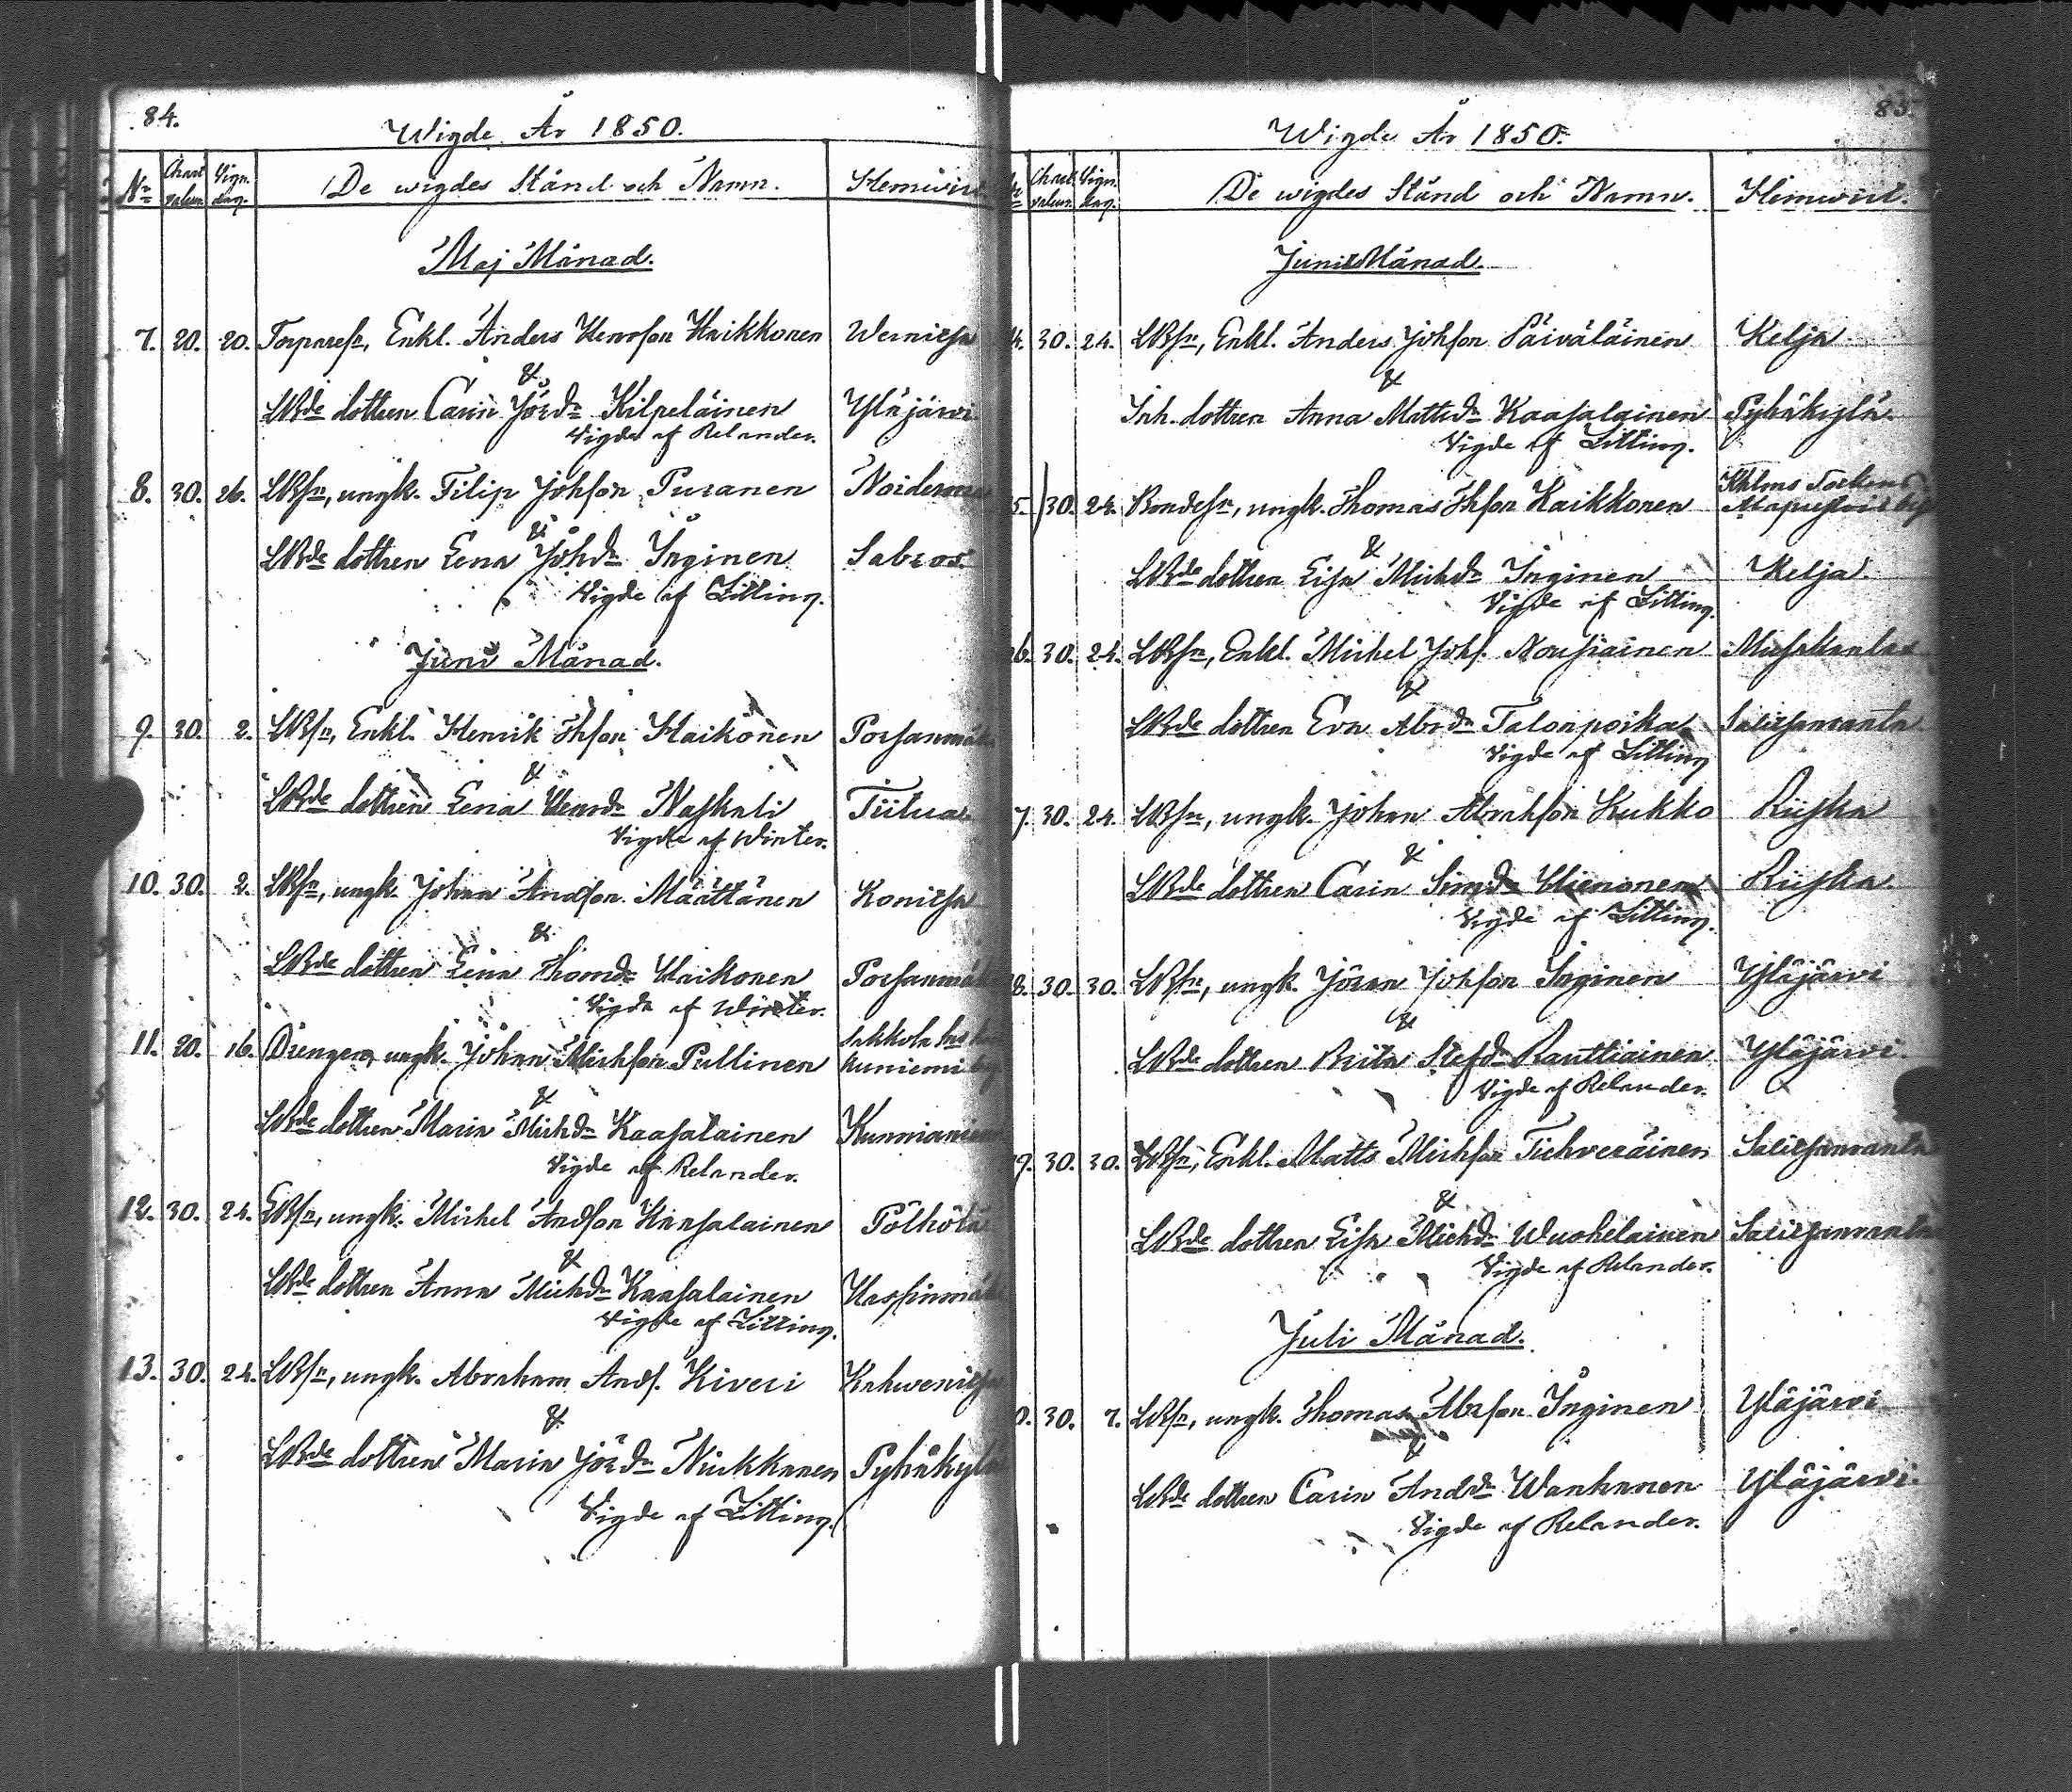 84.
Wigde År 1850.
No Chart. valuer. Vign. dag. De wigdes Stånd och Namn. Hemvist
Maj Månad.
7. 20. 20. Torparesn, Enkl. Anders Henrson Haikkonen Wernitsa
&
LBde dottren Carin Jördn Kilpeläinen Yläjärvi
Vigde af Relander.
8. 30. 26. LBsn, ungk. Filip Johson Puranen
&
LBde dottren Lena Johdn Inginen
Vigde af Litting.
Juni Månad.
9. 30. 2. LBsn, Enkl. Henrik Thson Haikönen Porsanmä
&
LBde dottren Lena Henrdn Naskali Tiitua
Vigde af Winter.
10. 30. 2. LBsn, ungk. Johan Andson Määttänen Konitsa
&
LBde dottren Lena Thomdn Haikonen Porsanmä
Vigde af Winter.
11. 20. 16. Drengen, ungk. Johan Michson Pullinen Sakkola
&
LBde dottren Maria Michdn Kaasalainen Kunnianiemi
Vigde af Relander.
12. 30. 24. LBsn, ungk. Michel Andson Kaasalainen Pölhölä
&
LBde dottren Anna Michdn Kaasalainen Hassinmä
Vigde af Litting.
13. 30. 24. LBsn, ungk. Abraham Ands. Kiveri Kahwenitsa
&
LBde dottren Maria Jördn Niukkanen Pyhäkylä
Vigde af Litting.
85.
Wigde År 1850.
Chart. valuer. Vign. dag. De wigdes Stånd och Namn. Hemvist.
Juni Månad.
4. 30. 24. LBsn, Enkl. Anders Johson Päiväläinen Kelja
&
Inh. dottren Anna Mattsdn Kaasalainen Pyhäkylä.
Vigde af Litting.
5. 30. 24. Bondesn, ungk. Thomas Thson Kaikkonen
&
LBde dottren Lisa Michdn Inginen Kelja.
Vigde af Litting.
6. 30. 24. LBsn, Enkl. Michel Johs. Nousiainen
&
LBde dottren Eva Abrdn Talonpoika Saiitsanranta
Vigde af Litting
7. 30. 24. LBsn, ungk. Johan Abrahson Kukko Riiska
&
LBde dottren Carin Simdn Hienonen Riiska.
Vigde af Litting.
8. 30. 30. LBsn, ungk. Jöran Johson Inginen Yläjärvi
&
LBde dottren Brita Stefdn Rauttiainen Yläjärvi.
Vigde af Relander.
9. 30. 30. LBsn, Enkl. Matts Michson Tichveräinen Saiitsanranta
&
LBde dottren Lisa Michdn Wuohelainen Saiitsanranta
Vigde af Relander.
Juli Månad.
0. 30. 7. LBsn, ungk. Thomas Abrson Inginen Yläjärvi
&
LBde dottren Carin Anddn Wanhanen Yläjärvi.
Vigde af Relander.